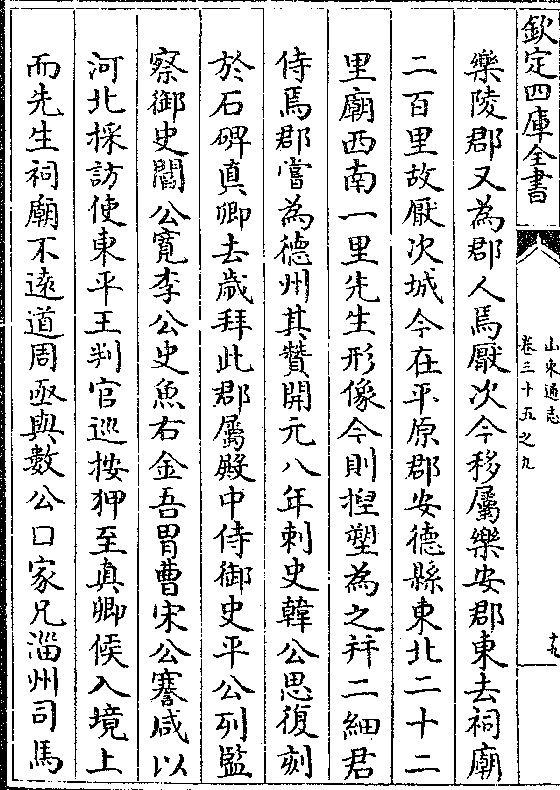 欽定四庫全書
山東通志
卷三十五之九
樂陵郡又為郡人焉厭次今移屬樂安郡東去祠廟
二百里故厭次城今在平原郡安德縣東北二十二
里廟西南一里先生形像今則揑塑為之并二細君
侍焉郡嘗為德州其贊開元八年刺史韓公思復刻
於石碑真卿去歳拜此郡屬殿中侍御史平公列監
察御史閻公寛李公史魚右金吾胄曹宋公謇咸以
河北採訪使東平王判官巡按狎至真卿候入境上
而先生祠廟不逺道周亟與數公口家兄淄州司馬